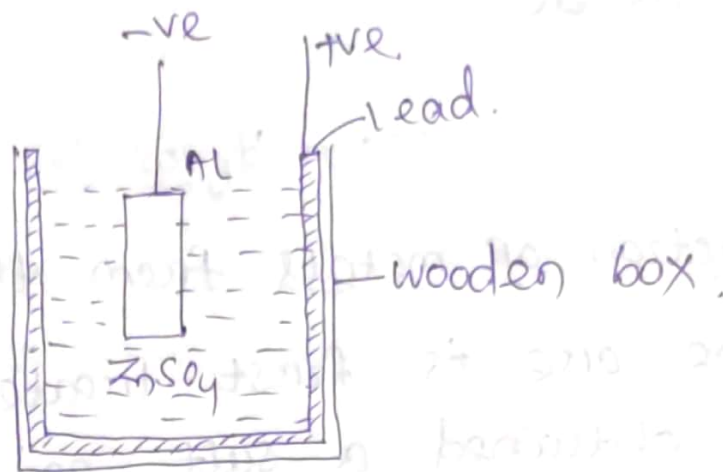 -ve
+ve.
lead.
AL
wooden box.
ZnSO4